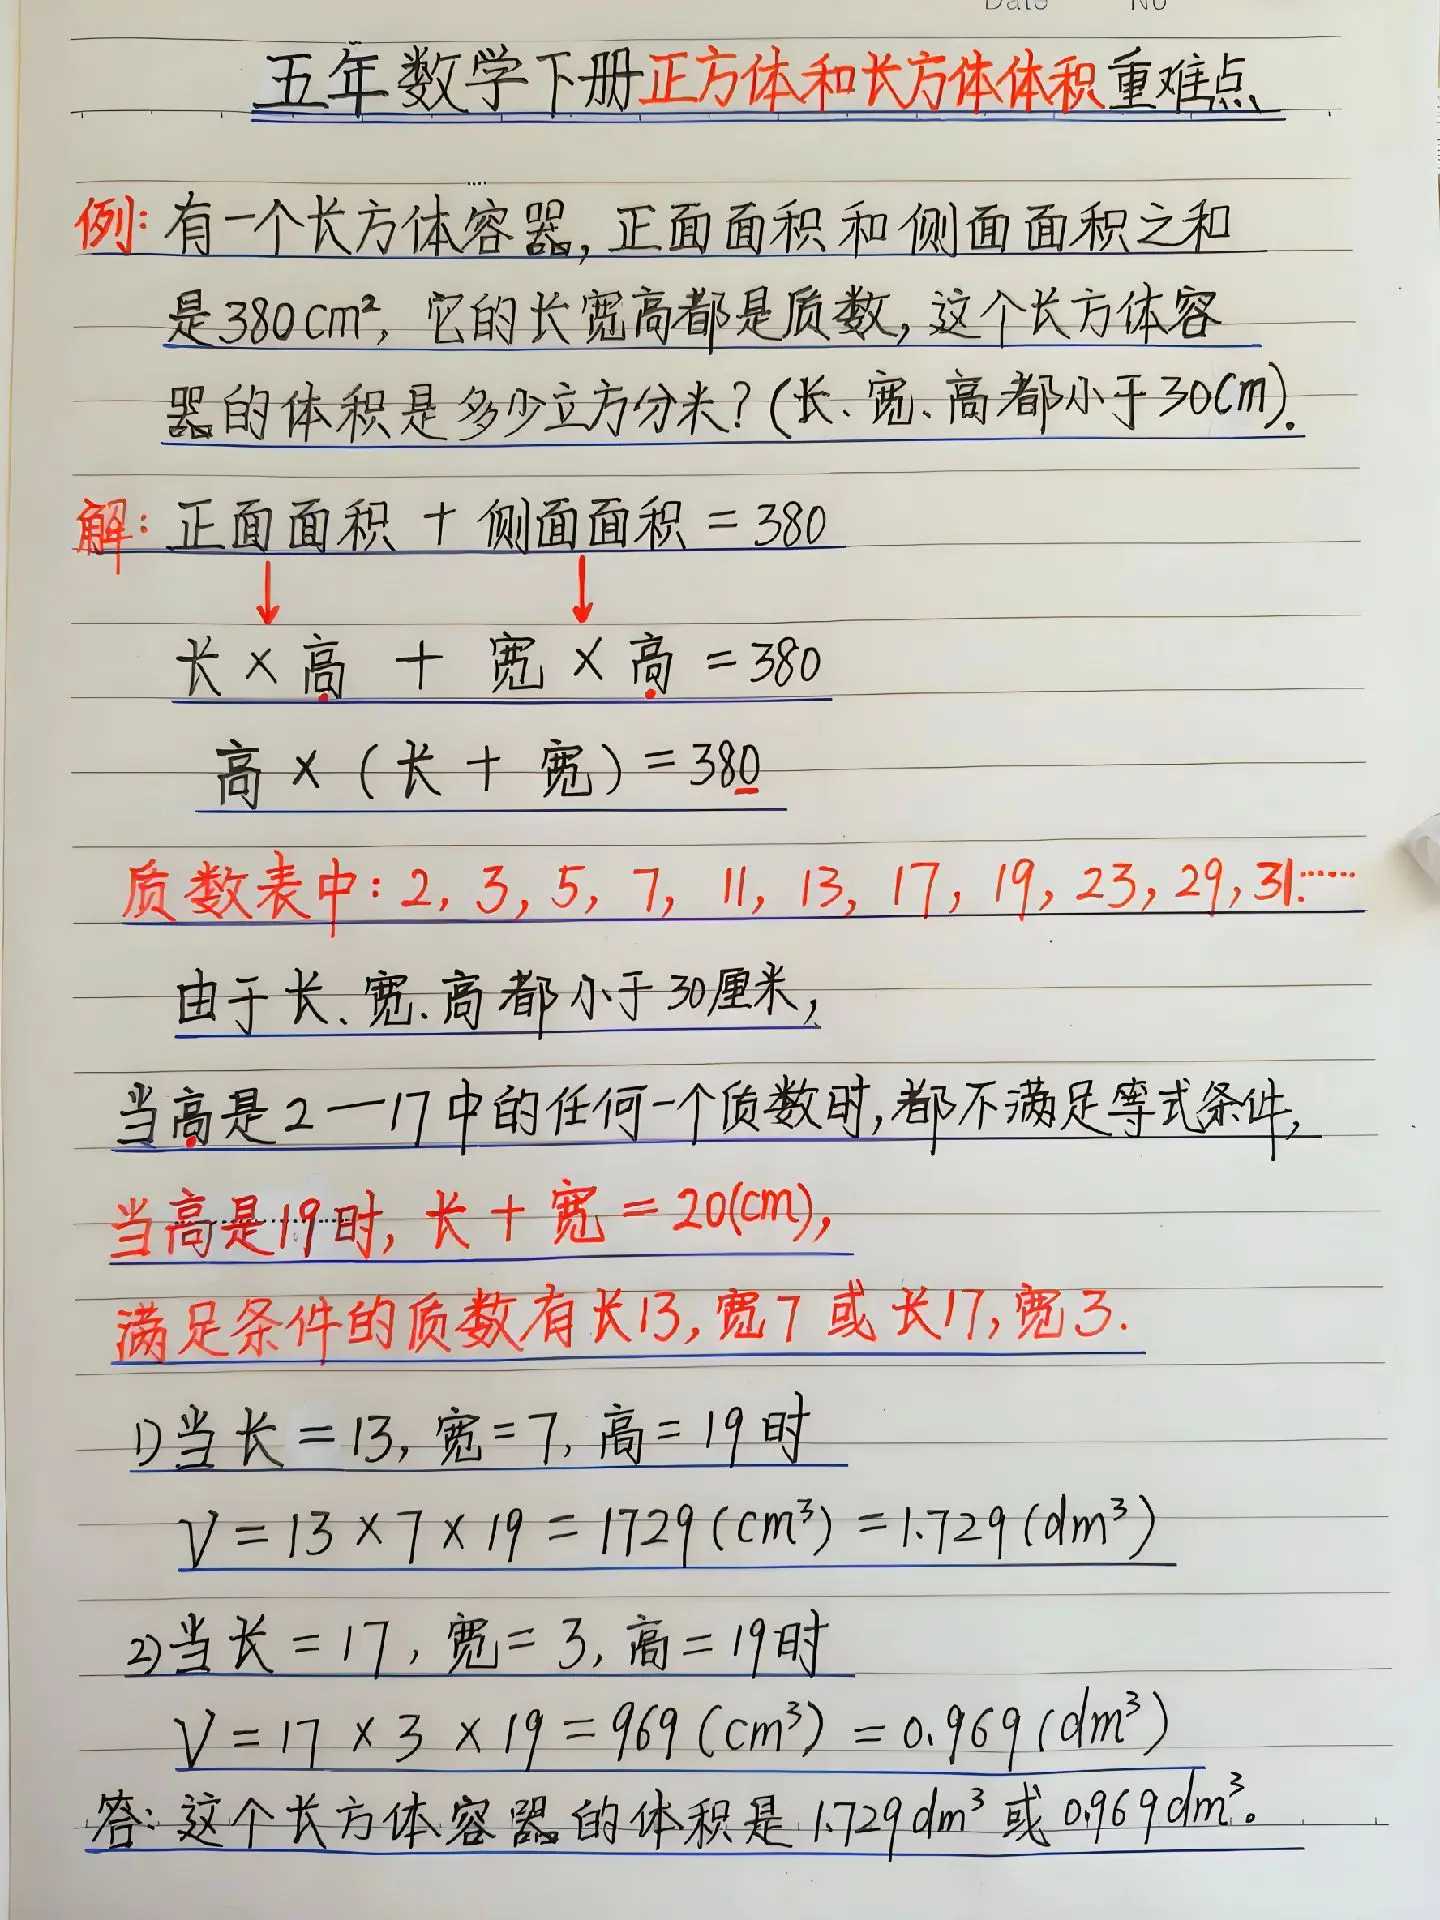 Date No
五年数学下册正方体和长方体体积重难点
例:有一个长方体容器,正面面积和侧面面积之和
是380cm²,它的长宽高都是质数,这个长方体容
器的体积是多少立方分米?(长、宽、高都小于30cm).
解:正面面积+侧面面积=380
长×高+宽×高=380
高×(长+宽)=380
质数表中:2,3,5,7,11,13,17,19,23,29,31……
由于长、宽、高都小于30厘米,
当高是2—17中的任何一个质数时,都不满足等式条件,
当高是19时,长+宽=20(cm),
满足条件的质数有长13,宽7或长17,宽3.
1)当长=13,宽=7,高=19时
V=13×7×19=1729(cm³)=1.729(dm³)
2)当长=17,宽=3,高=19时
V=17×3×19=969(cm³)=0.969(dm³)
答:这个长方体容器的体积是1.729dm³或0.969dm³。